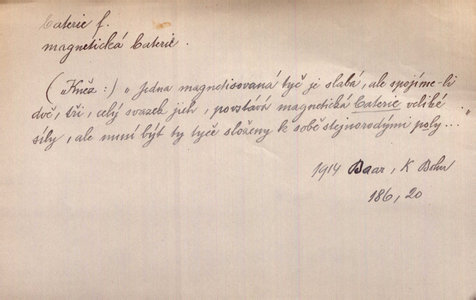 baterie f.
magnetická baterie.
(Kněz:) „Jedna magnetisovaná tyč je slabá, ale spojíme-li
dvě, tři, celý svazek jich, povstává magnetická baterie veliké
síly, ale musí být ty tyče složeny k sobě stejnorodými poly..."
1914 Baar, K Bohu
186, 20